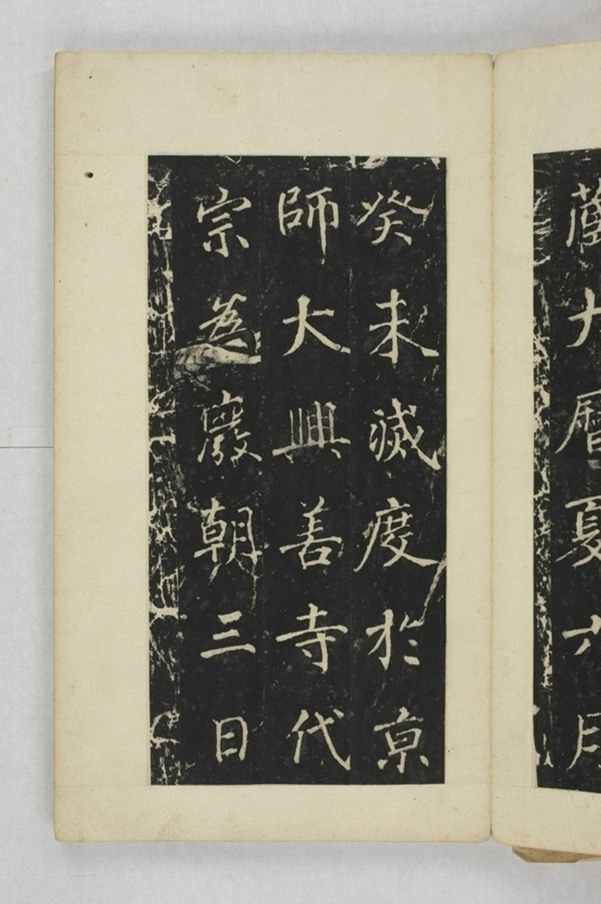 藏大曆夏六月
癸未滅度於京
師大興善寺代
宗為廢朝三日